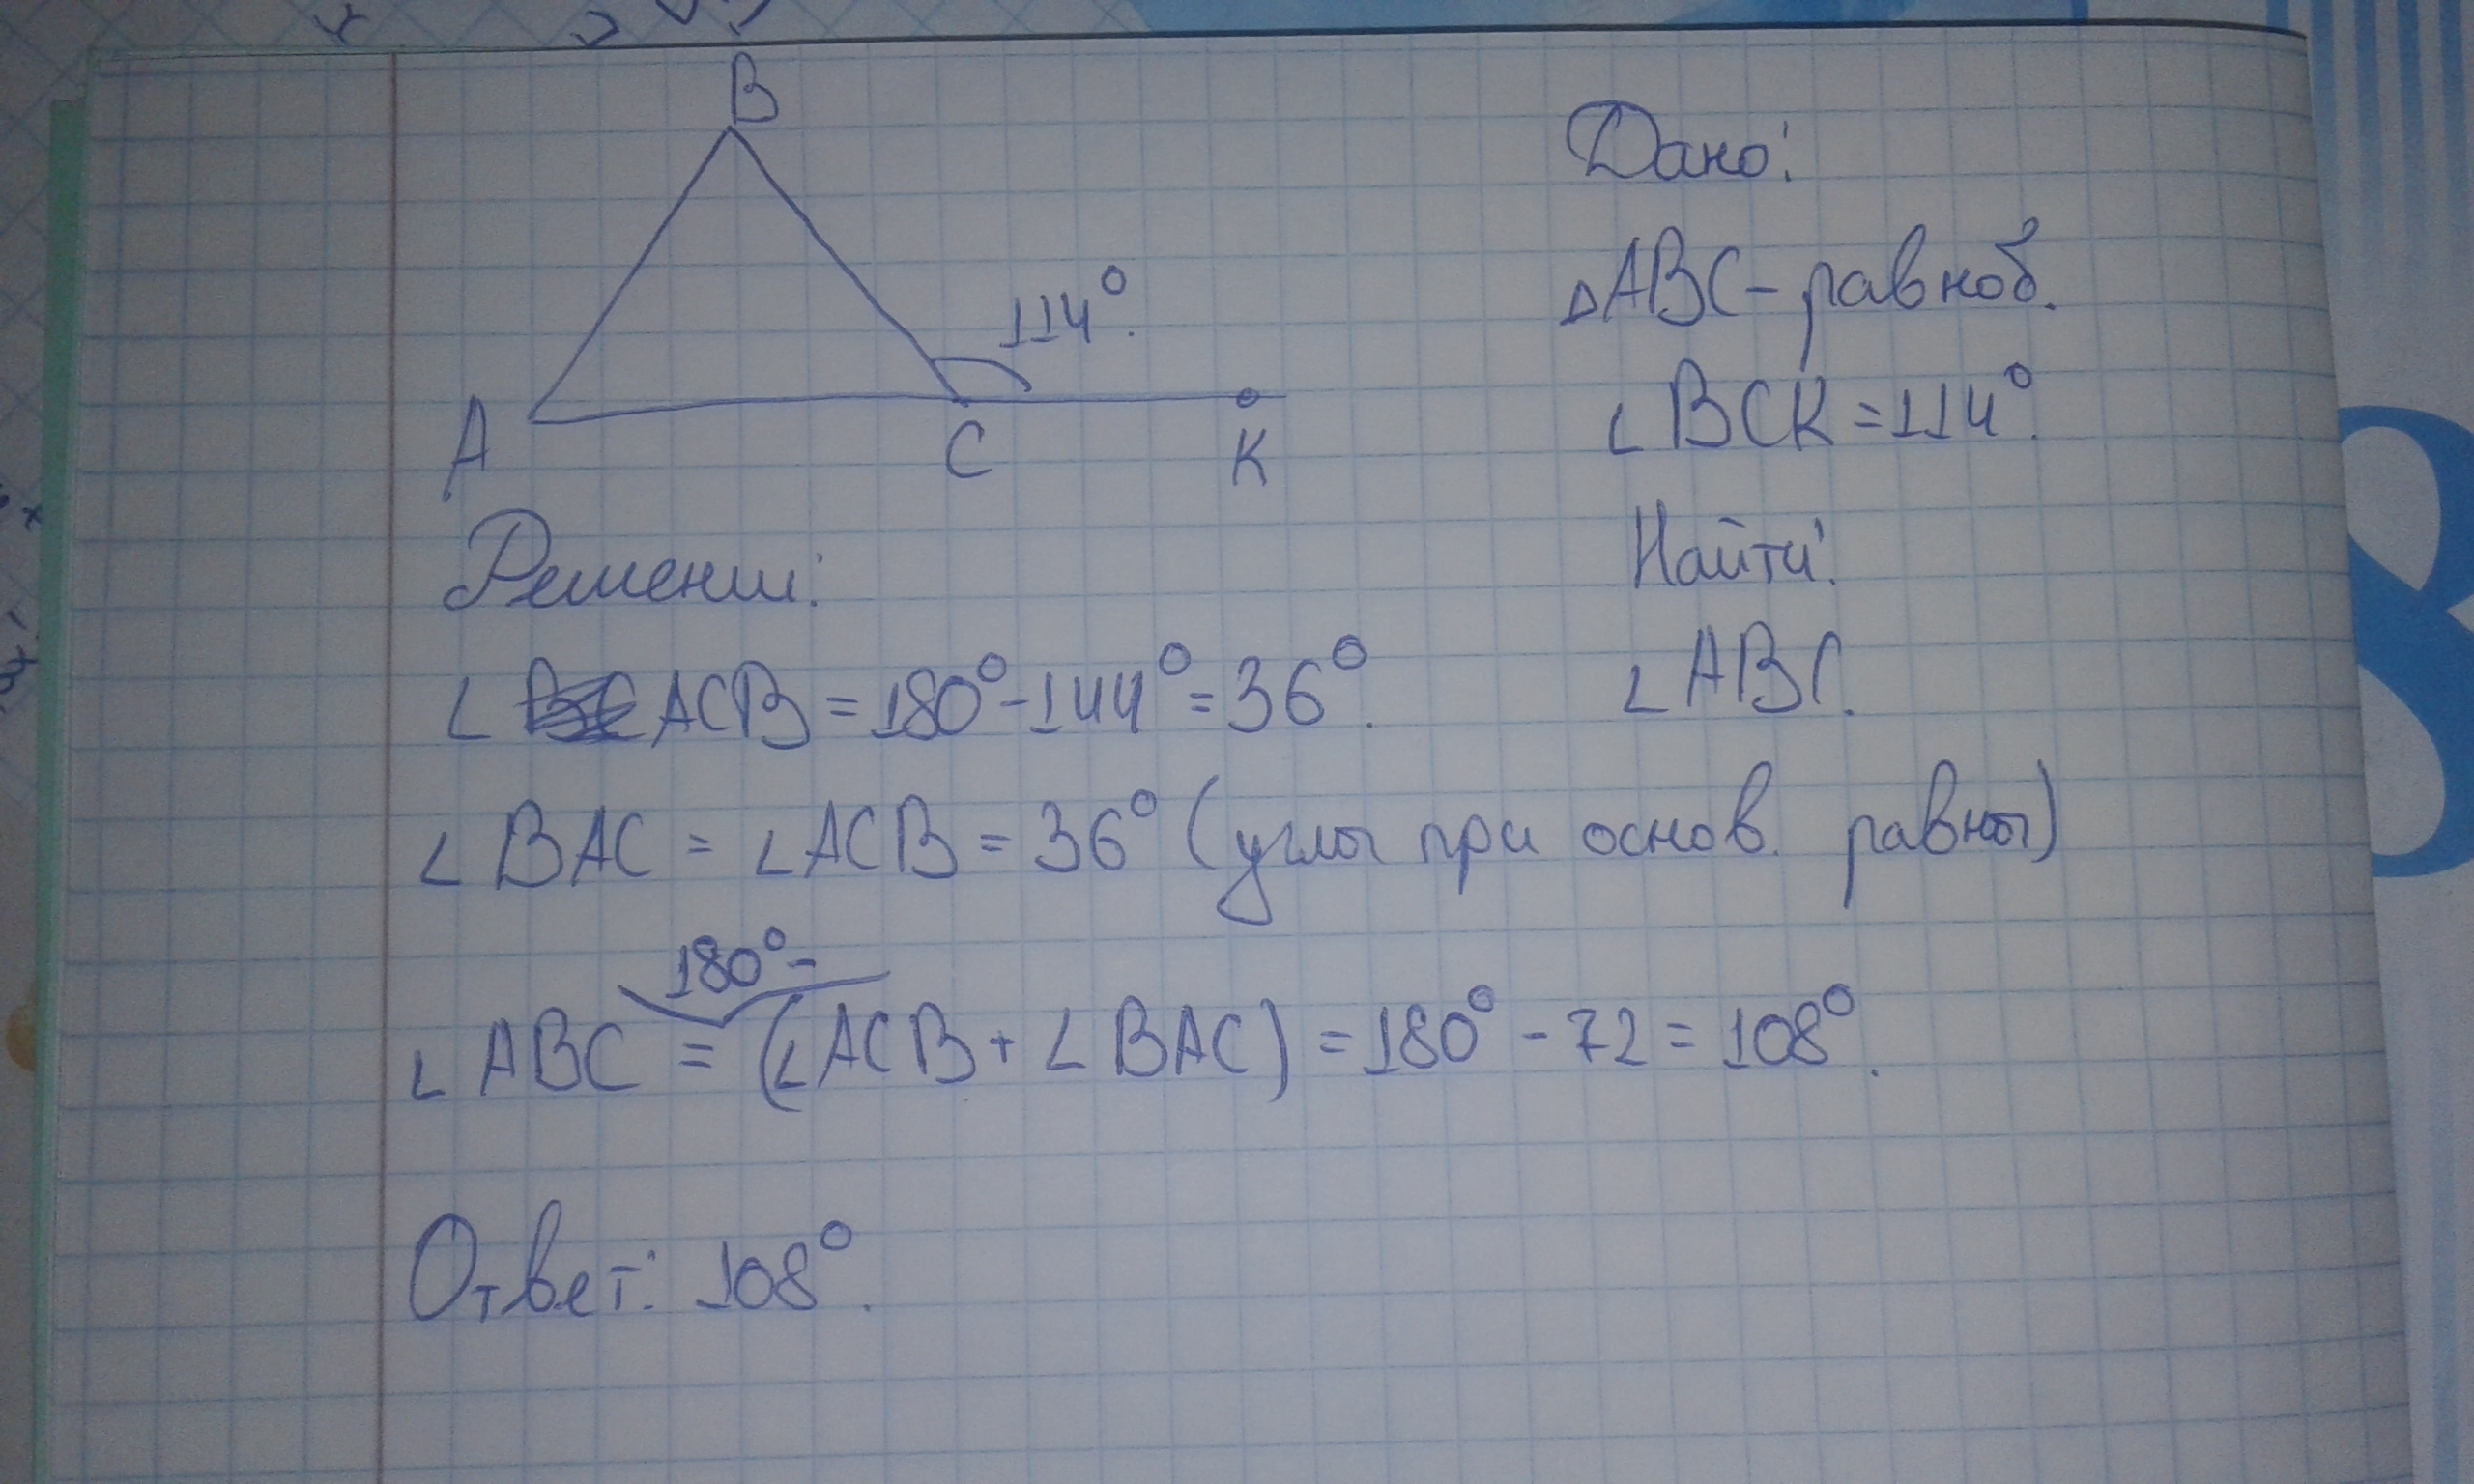 B
114°.
A
C
K
Дано:
△ABC - равноб.
∠BCK = 114°.
Найти:
∠ABC.
Решении:
∠ ACB = 180° - 144° = 36°.
∠ BAC = ∠ ACB = 36° (углы при основ. равны)
180° -
∠ ABC = (∠ACB + ∠ BAC) = 180° - 72 = 108°.
Ответ: 108°.
8